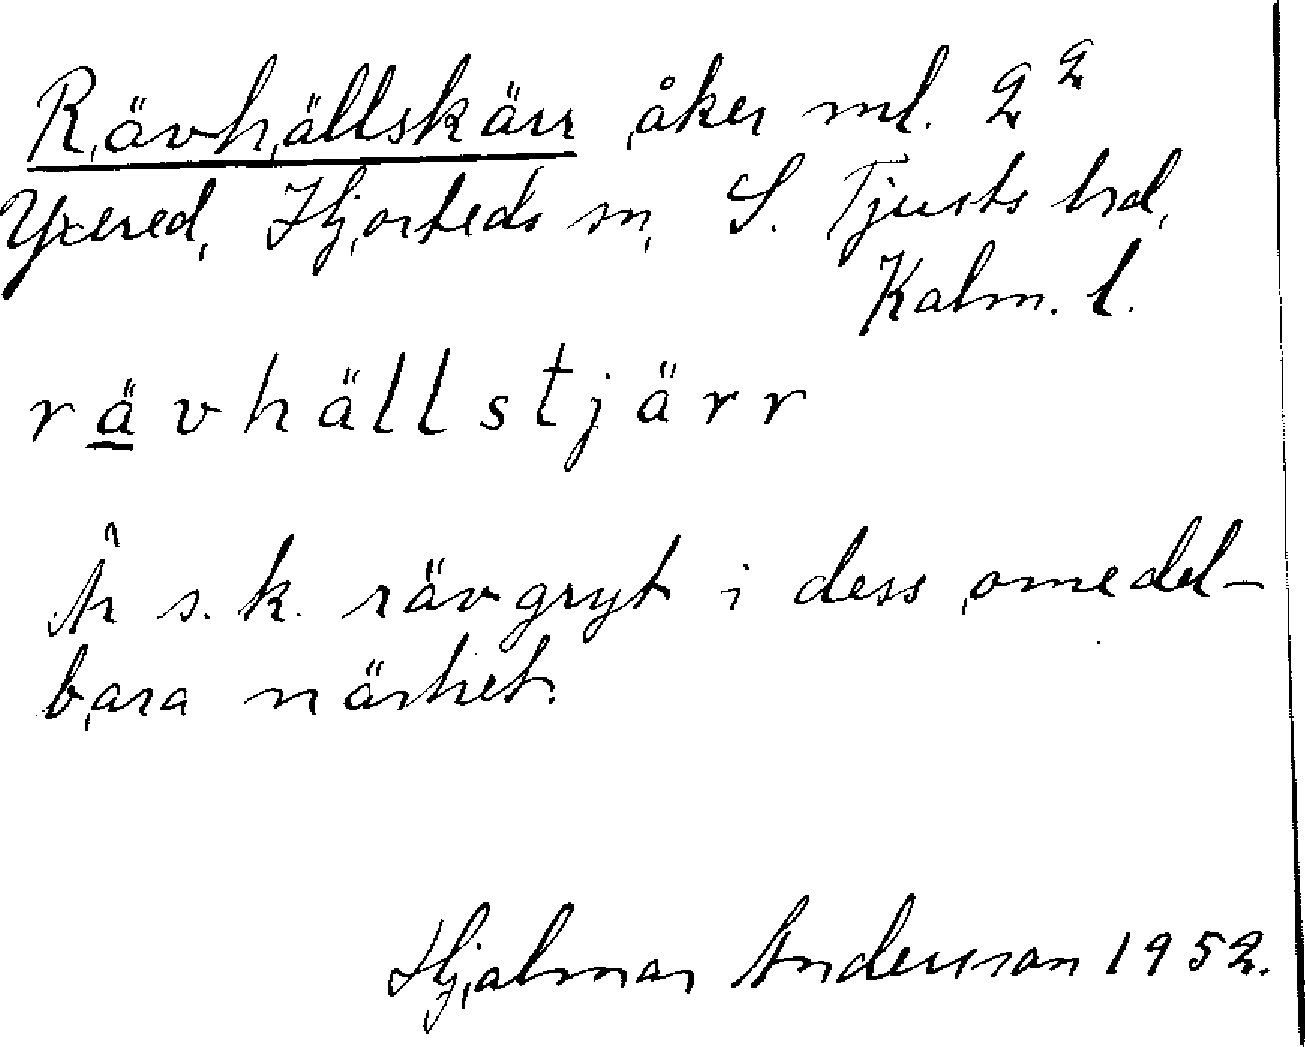 Rävhällskärr åker ml. 2²
Yxered, Hjorteds sn, S. Tjusts hd,
Kalm. l.
rävhällstjärr
Är s.k. rävgryt i dess omedel-
bara närhet.
Hjalmar Andersson 1952.